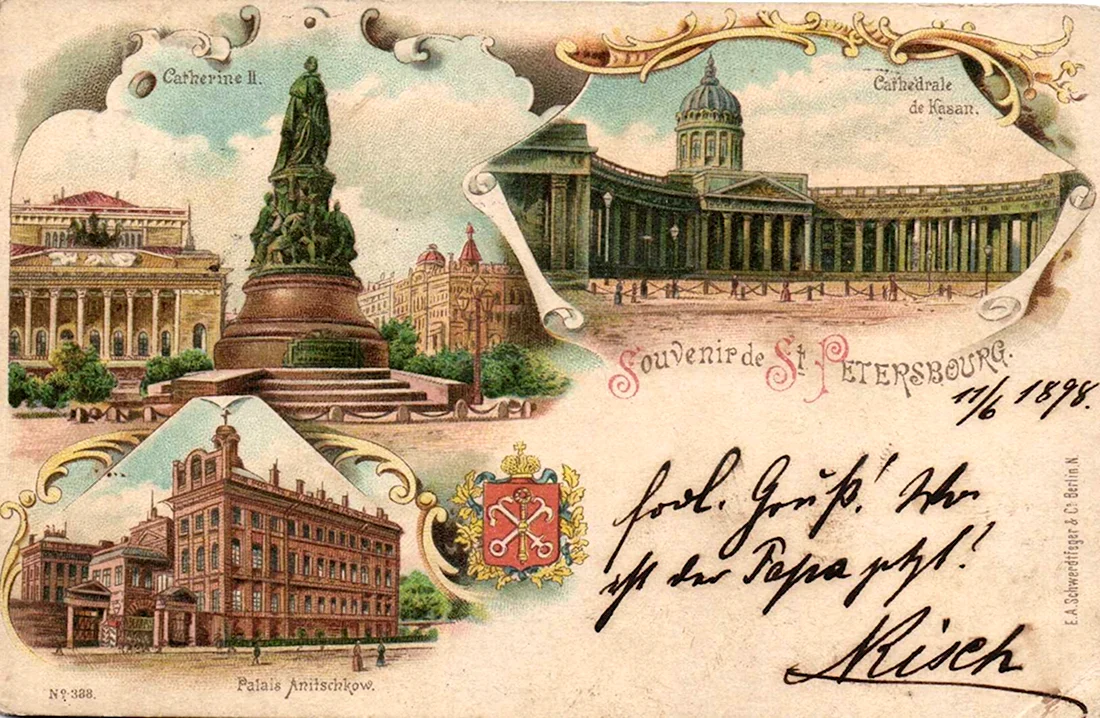 Catherine II.
Cathedrale
de Kasan.
Souvenir de St. Petersbourg.
11/6 1898.
frdl. Gruß! Wo
ist der Papa jetzt!
Risch
Palais Anitschkow.
No 388.
E.A.Schwerdtfeger & Co Berlin.N.